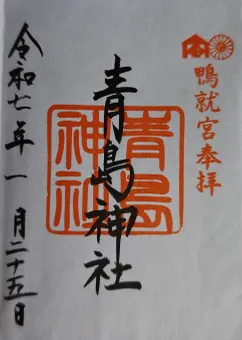 鴨就宮奉拝
青島神社
青島
神社
令和七年一月二十五日